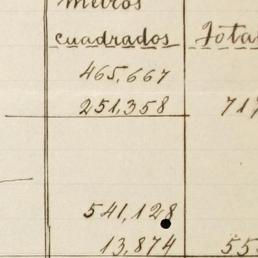 metros
cuadrados Tota
465,667
251,358 717
541,128
13,874 55